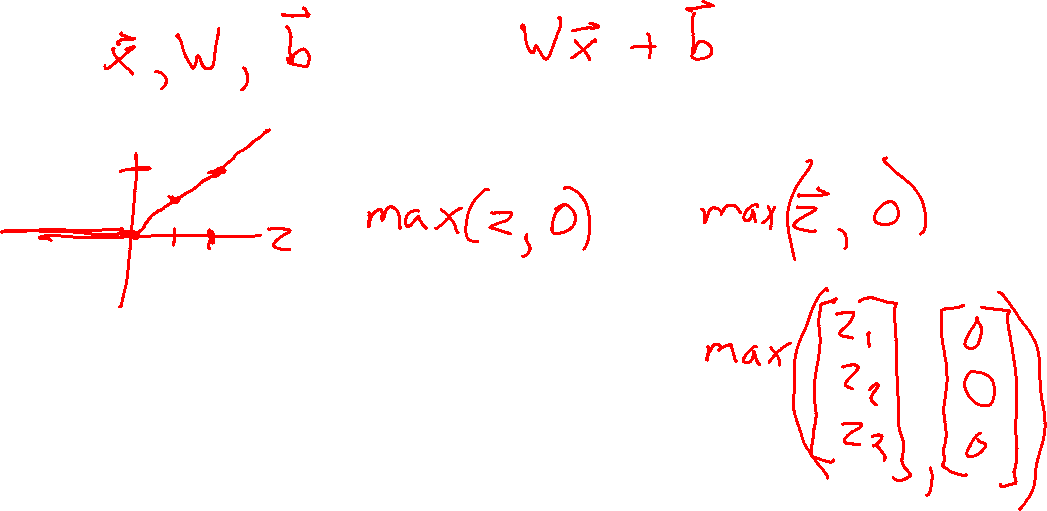 x⃗, W, b⃗    Wx⃗ + b⃗
z    max(z, 0)    max(z⃗, 0)
max([z₁ z₂ z₃], [0 0 0])